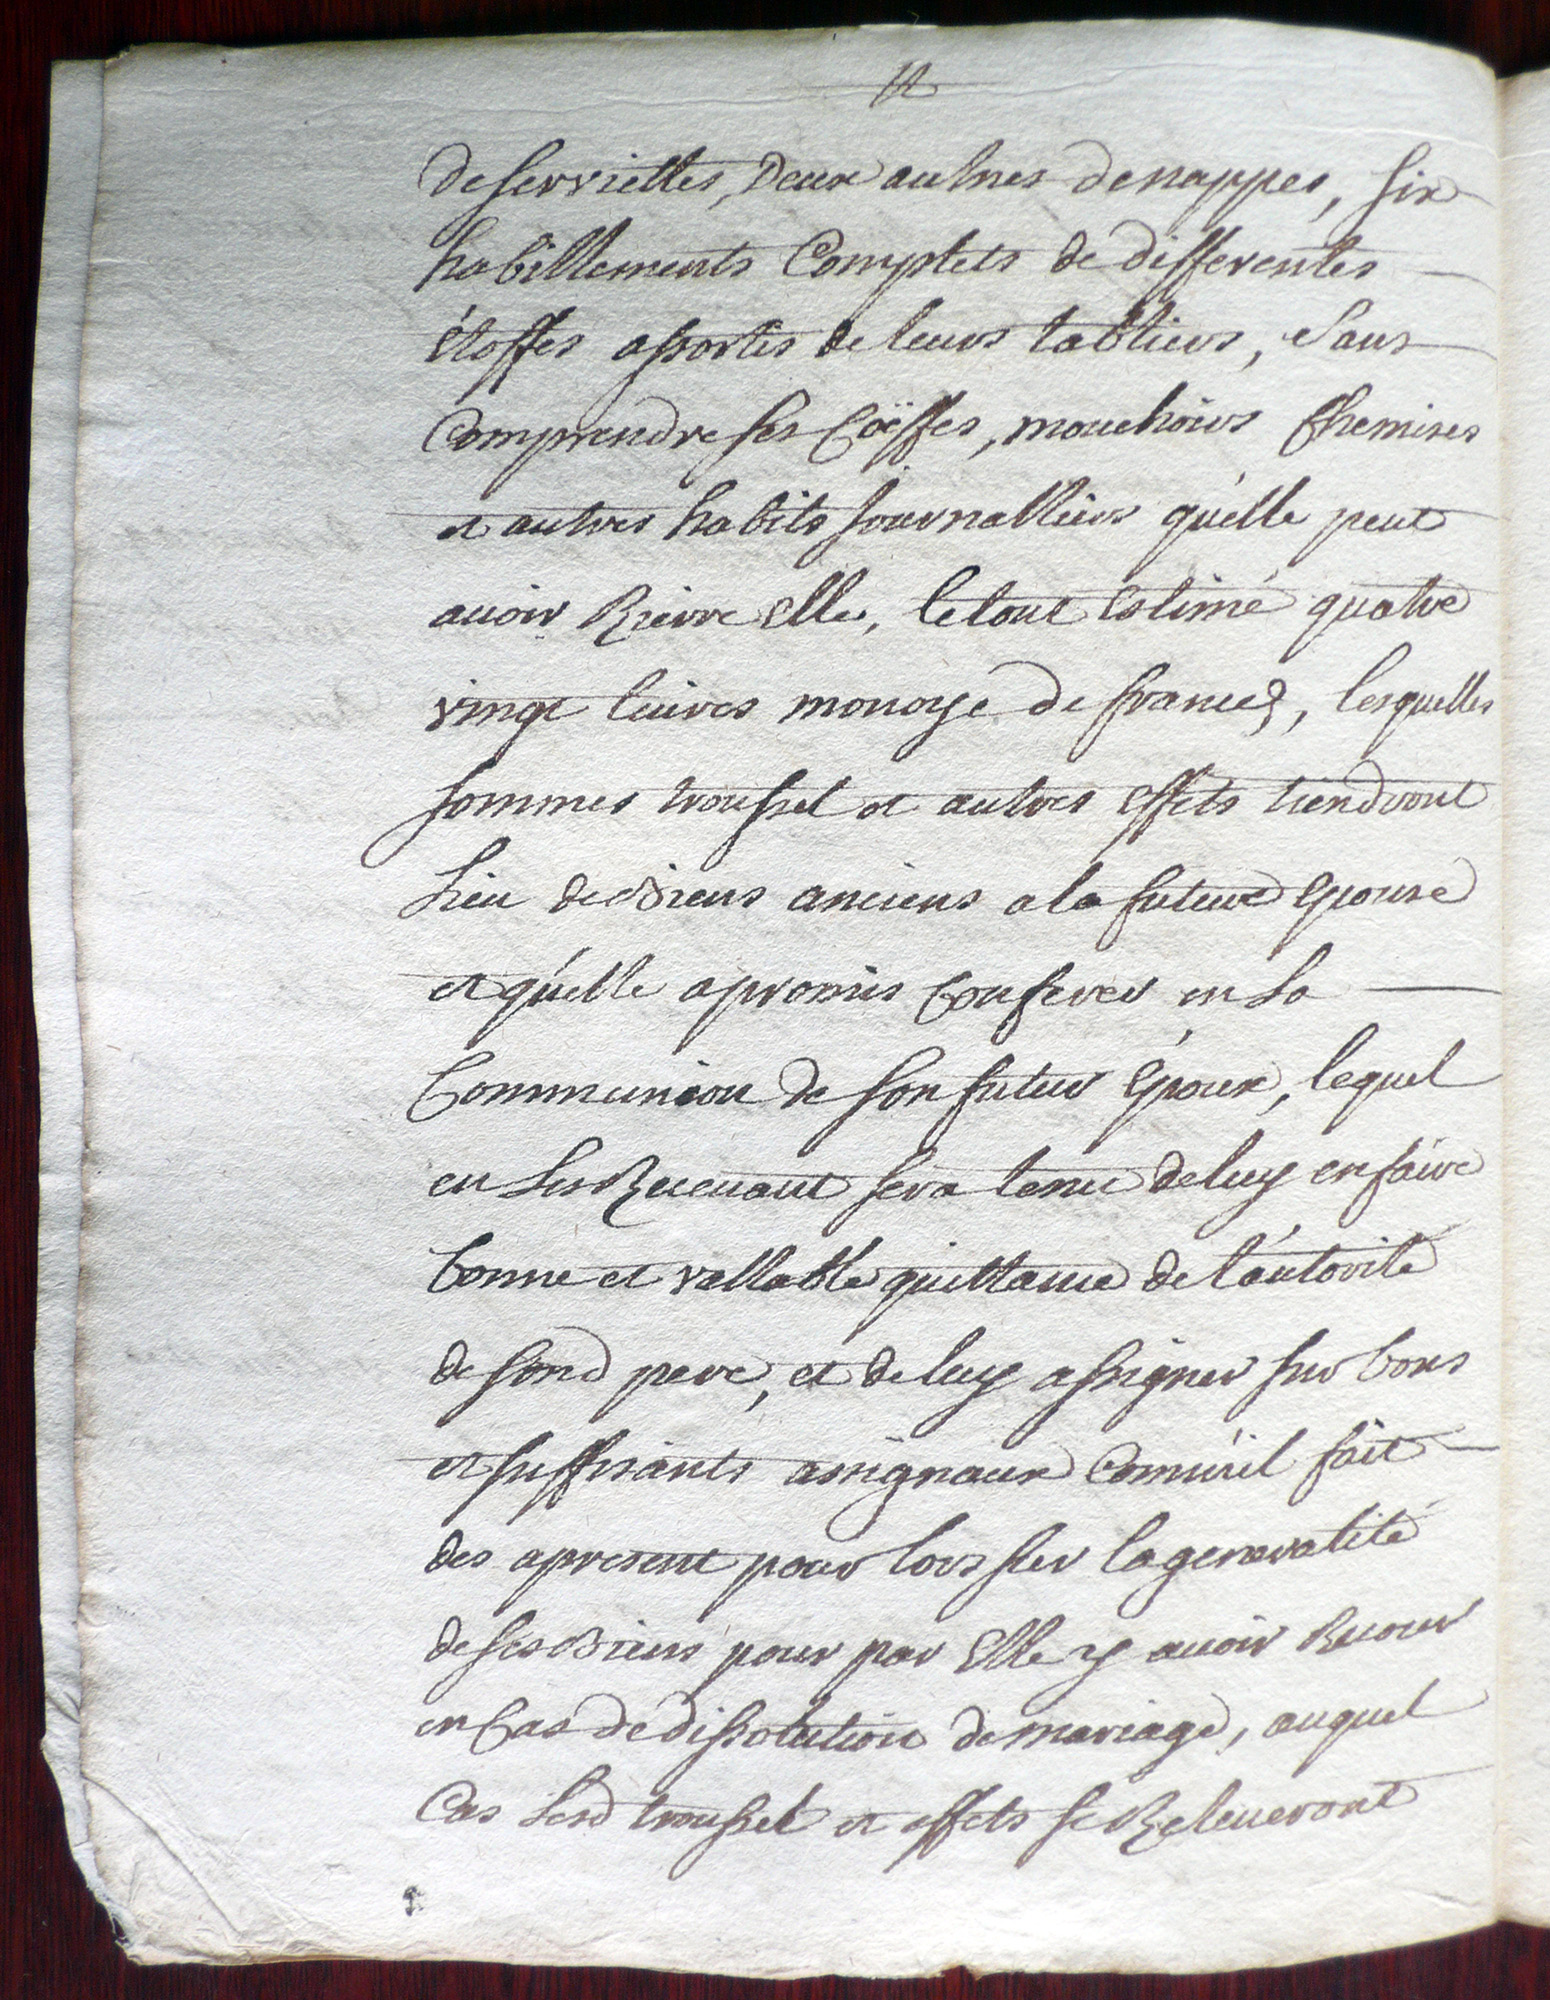 de servviettes, Deux aulnes de nappes, six
habillements Complets de differentes
étoffes assortis de leurs tabliers, Sans
Comprendre ses Coëffes, mouchoirs Chemises
et autres habits Journalliers qu'elle peut
avoir Rierre Elle, le tout Estimé quatre
vingt livres monoye de france, lesquelles
sommes troussel et autres Effets tiendront
Lieu de Biens anciens a la future Epouse
et qu'elle a promis Conferer en La
Communion de son futur Epoux, lequel
en Les Recevant sera tenu de luy en faire
bonne et vallable quittance de l'autorité
de sond pere, et de luy assigner sur bons
et suffisants assignaux Comm'il fait
des apresent pour lors sur la generalité
de ses Biens pour par Elle y avoir Recour
en Cas de dissolution de mariage, auquel
Cas Lesd troussel et effets se Releveront